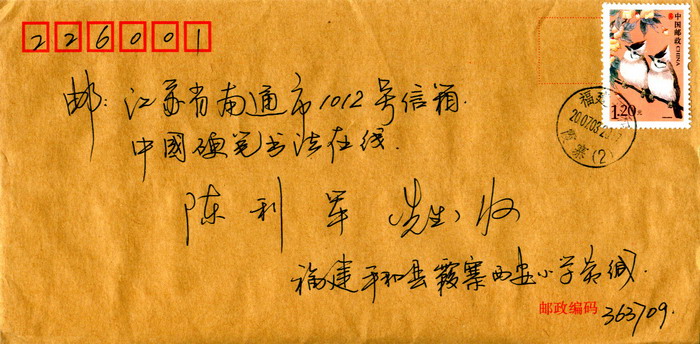 226001
中国邮政 CHINA
1.20元
福建
2007.03.2
霞寨(2)
邮:江苏省南通市1012号信箱.
中國硬笔书法在线.
陈利军 先生 收
福建平和县霞寨西安小学黄缄.
邮政编码 363709.